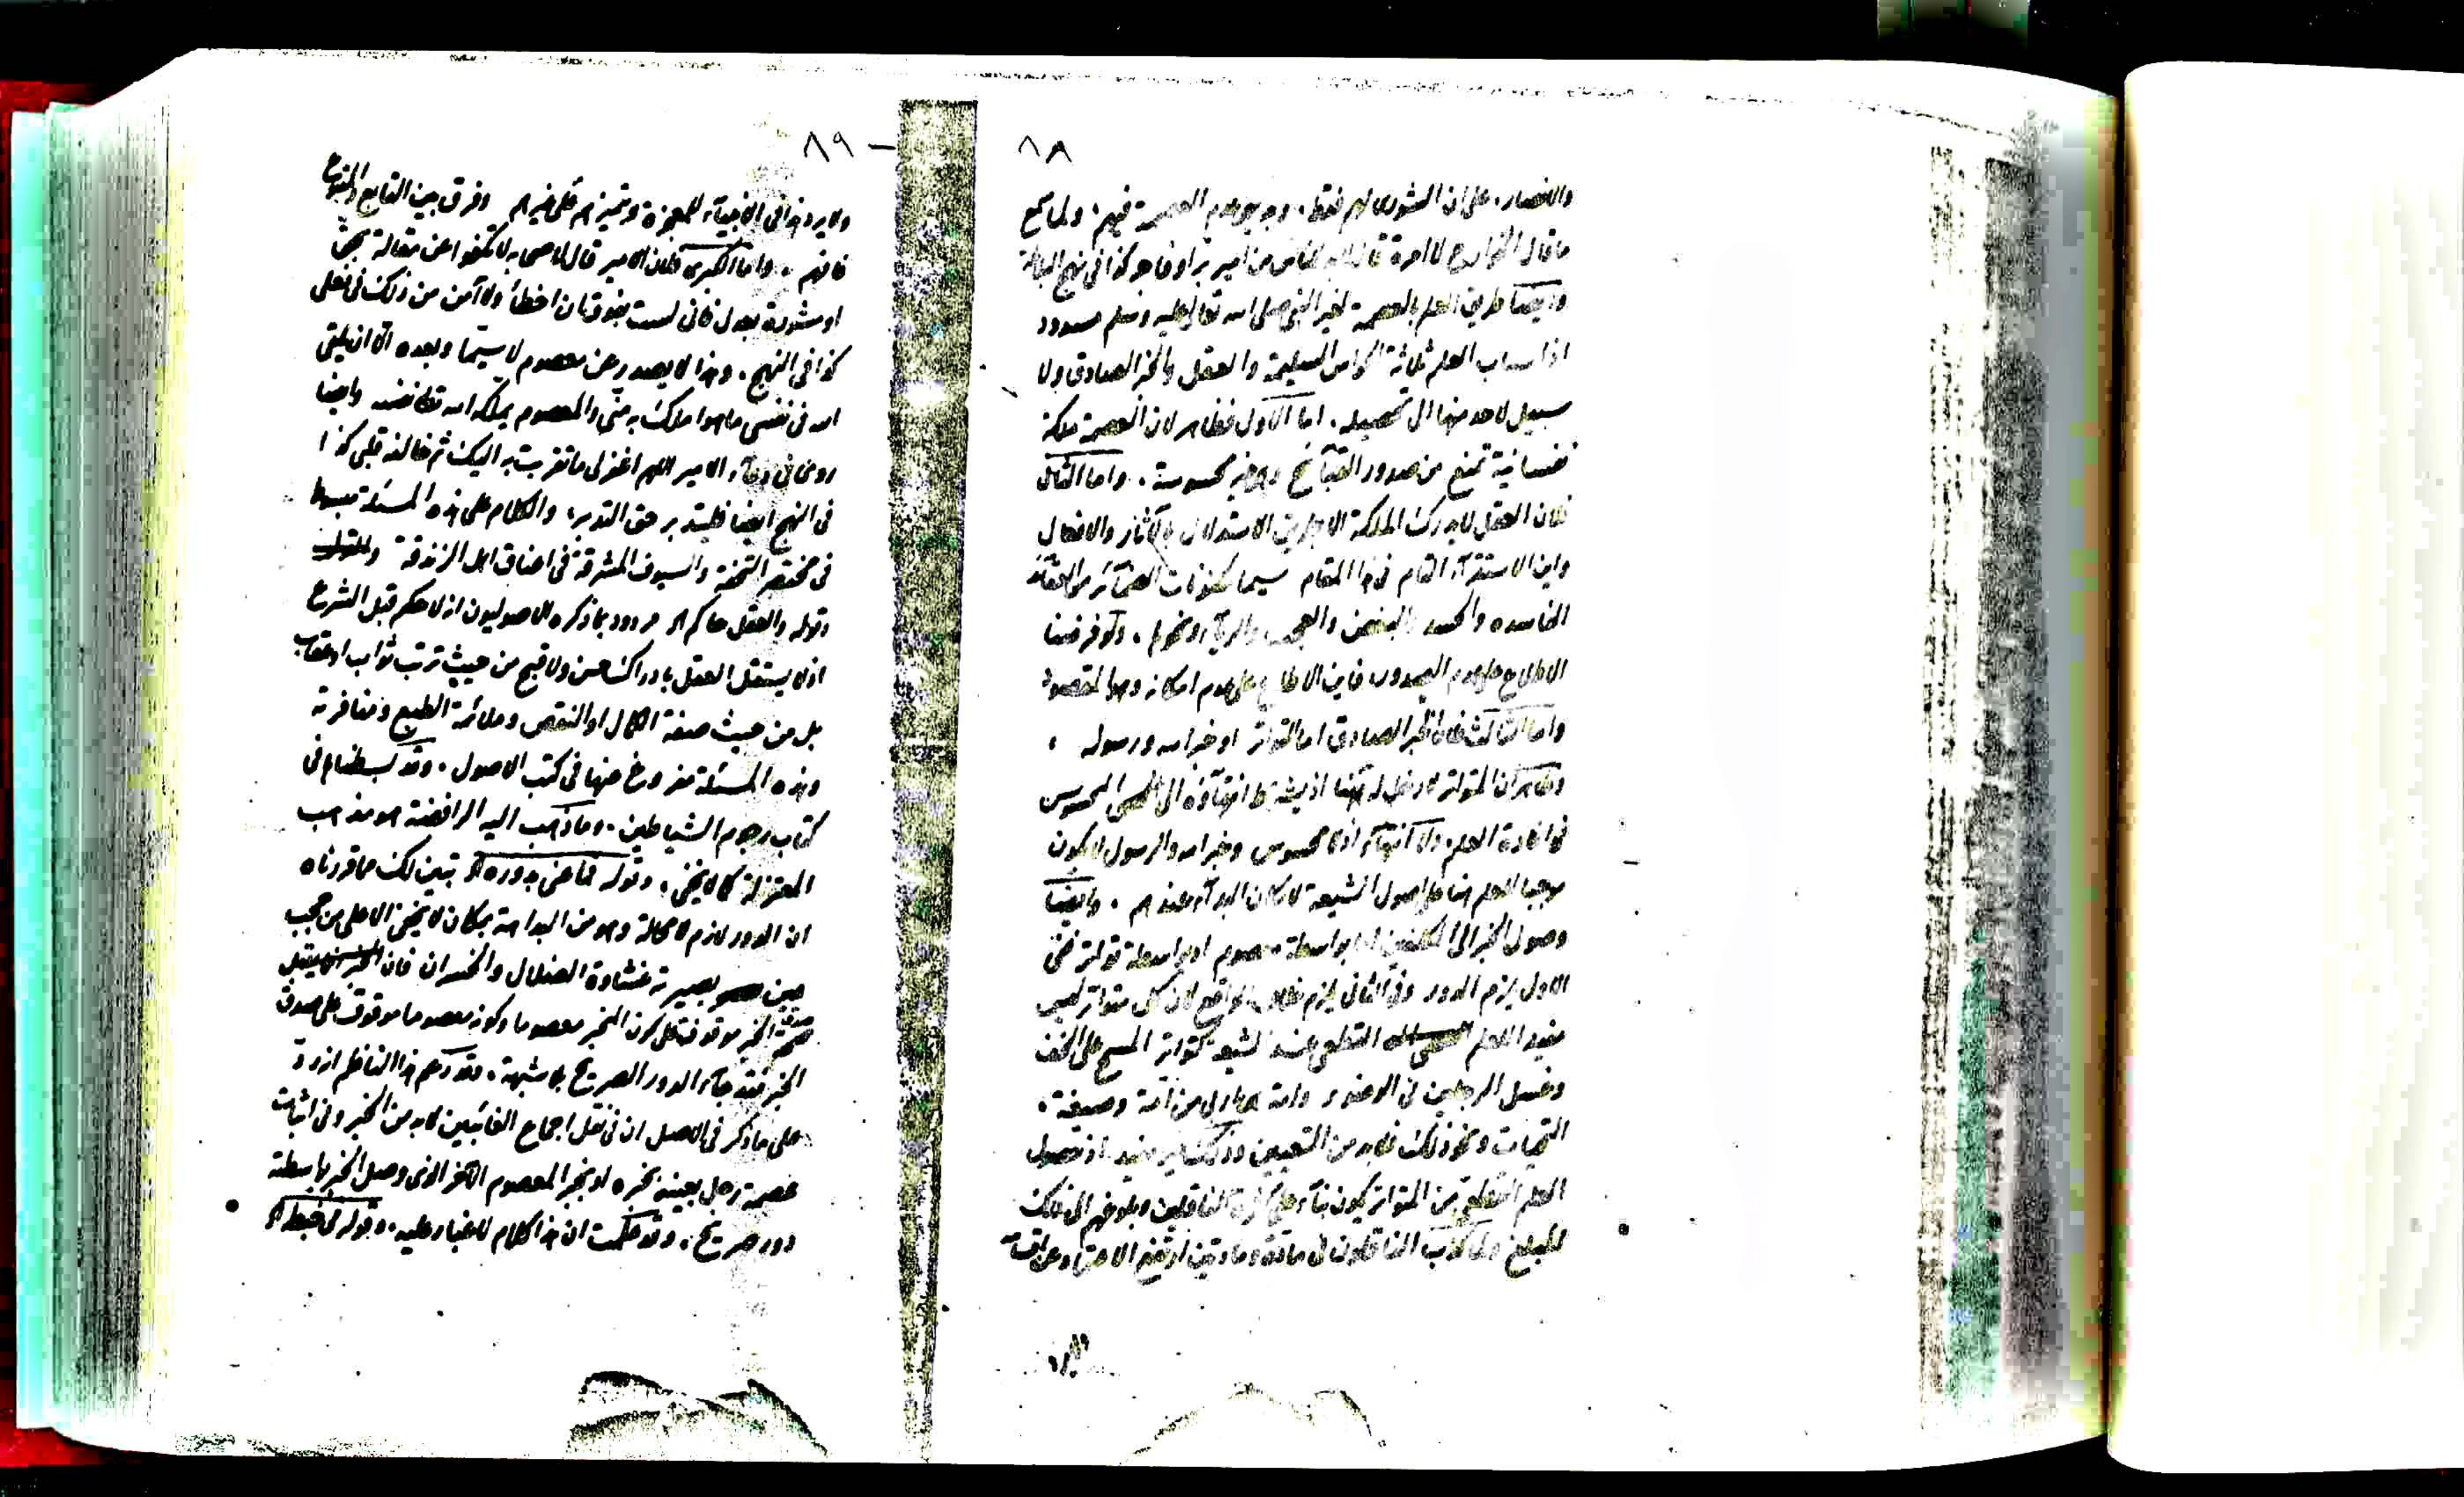 ١٨
والانصار، على ان الشورى لهم فقط، وبديهي عدم العصمة فيهم، ولما سمع
ما قال الخوارج لا امرة قال لابد للناس من امير بر او فاجر كذا في نهج البلاغة
وايضا طريق العلم بالعصمة لغير النبي صلى الله تعالى عليه وسلم مسدود
اذ اسباب العلم ثلاثة الحواس السليمة والعقل والخبر الصادق ولا
سبيل لاحد منها الى تحصيله، اما الاول فظاهر لان العصمة ملكة
نفسانية تمنع من صدور القبائح وهي غير محسوسة، واما الثاني
فلان العقل لا يدرك الملكة الا بطريق الاستدلال بالآثار والافعال
واين الاستقراء التام في هذا المقام سيما مكنونات الضمائر من العقائد
الفاسدة والحسد والبغض والعجب والرياء ونحوها، ولو فرضنا
الاطلاع على عدم الصدور فاين الاطلاع على عدم امكانه وهو المقصود
واما الثالث فلان الخبر الصادق اما المتواتر او خبر الله ورسوله،
وظاهر ان المتواتر لا دخل له ههنا اذ يشترط انتهاؤه الى المحسوس
في افادة العلم ولا انتهاء اذ لا محسوس وخبر الله والرسول لا يكون
موجبا للعلم هنا على اصول الشيعة لامكان البداء عندهم، وايضا
وصول الخبر الى المكلفين اما بواسطة معصوم او بواسطة تواتر ففي
الاول يلزم الدور وفي الثاني يلزم خلاف الواقع لان كل متواتر ليس
مفيدا للعلم القطعي عند الشيعة كتواتر المسح على الخف
وغسل الرجلين في الوضوء وامة هي اربى من امة وصيغة،
التحيات ونحو ذلك فلابد من التعيين وذلك غير مفيد اذ حصول
العلم القطعي من المتواتر يكون بناء على كثرة الناقلين وبلوغهم الى ذلك
المبلغ ولما كذب الناقلون في مادة ومادتين ارتفع الاعتماد عن اقسامه
٨٩
ولا يرد هذا في الانبياء للمعجزة وتميزهم على غيرهم وفرق بين التابع والمتبوع
فافهم، واما الكبرى فلان الامير قال لاصحابه لا تكفوا عن مقالة بحق
او مشورة بعدل فاني لست بفوق ان اخطأ ولا آمن من ذلك في فعلي
كذا في النهج، وهذا لا يصدر عن معصوم لا سيما وبعده الا ان يلقي
الله في نفسي ما هو املك به مني والمعصوم يملكه الله تعالى نفسه وايضا
روي في دعاء الامير اللهم اغفر لي ما تقربت به اليك ثم خالفه قلبي كذا
في النهج ايضا فليتدبر حق التدبر، والكلام على هذه المسئلة مبسوط
في مختصر التحفة والسيوف المشرقة في اعناق اهل الزندقة
وقوله والعقل حاكم الخ مردود بما ذكره الاصوليون انه لا حكم قبل الشرع
اذ لا يستقل العقل بادراك حسن ولا قبح من حيث ترتب ثواب او عقاب
بل من حيث صفة الكمال او النقص وملائمة الطبع ومنافرته
وهذه المسئلة مفروغ منها في كتب الاصول، وقد بسطناها في
كتاب رجوم الشياطين، وما ذهب اليه الرافضة هو مذهب
المعتزلة كما لا يخفى، وقوله فما عنى بدوره الخ تبين لك مما قررناه
ان الدور لازم لا محالة وهو من البداهة بمكان لا يخفى الا على من حجب
عين بصيرته غشاوة الضلال والخسران فان
صدق الخبر موقوف على كون المخبر معصوما وكونه معصوما موقوف على صدق
الخبر فقد جاء الدور الصريح بلا شبهة، وقد زعم هذا الناظم ازدد
على ما ذكر في الاصل ان في نقل اجماع الغائبين لابد من الخبر وفي اثبات
عصمة رجل بعينه بخبره او بخبر المعصوم الآخر الذي وصل الخبر بواسطته
دور صريح، وقد علمت ان هذا الكلام لا غبار عليه، وقوله في خبط الخ